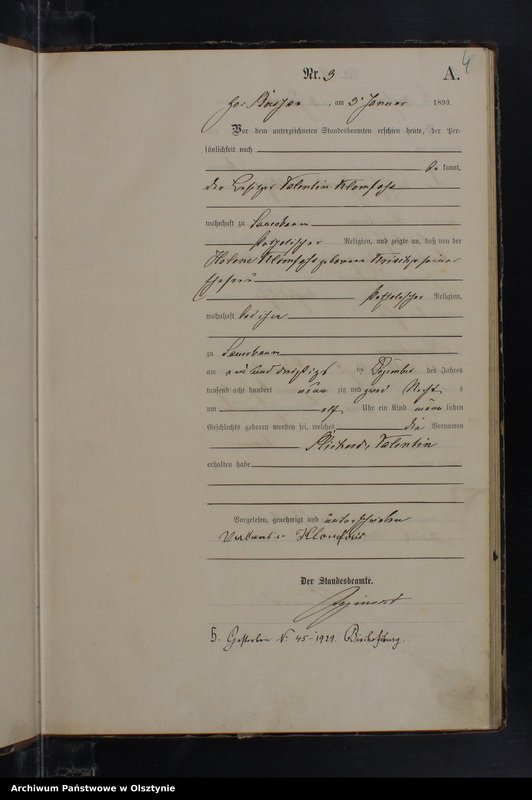 4
Nr. 3 A.
am 3. Januar 1893.
Vor dem unterzeichneten Standesbeamten erschien heute, der Per-
sönlichkeit nach
be kannt,
der Besitzer Valentin
wohnhaft zu
katholischer Religion, und zeigte an, daß von der
geborene seiner
Ehefrau
katholischer Religion,
wohnhaft bei ihm
zu
am ein und dreißigs ten Dezember des Jahres
tausend acht hundert neun zig und zwei Nachts
um elf Uhr ein Kind männ lichen
Geschlechts geboren worden sei, welches die Vornamen
Richard, Valentin
erhalten habe
Vorgelesen, genehmigt und unterschrieben
Der Standesbeamte.
Gestorben Nr. 45-1929. Bischofsburg.
Archiwum Państwowe w Olsztynie